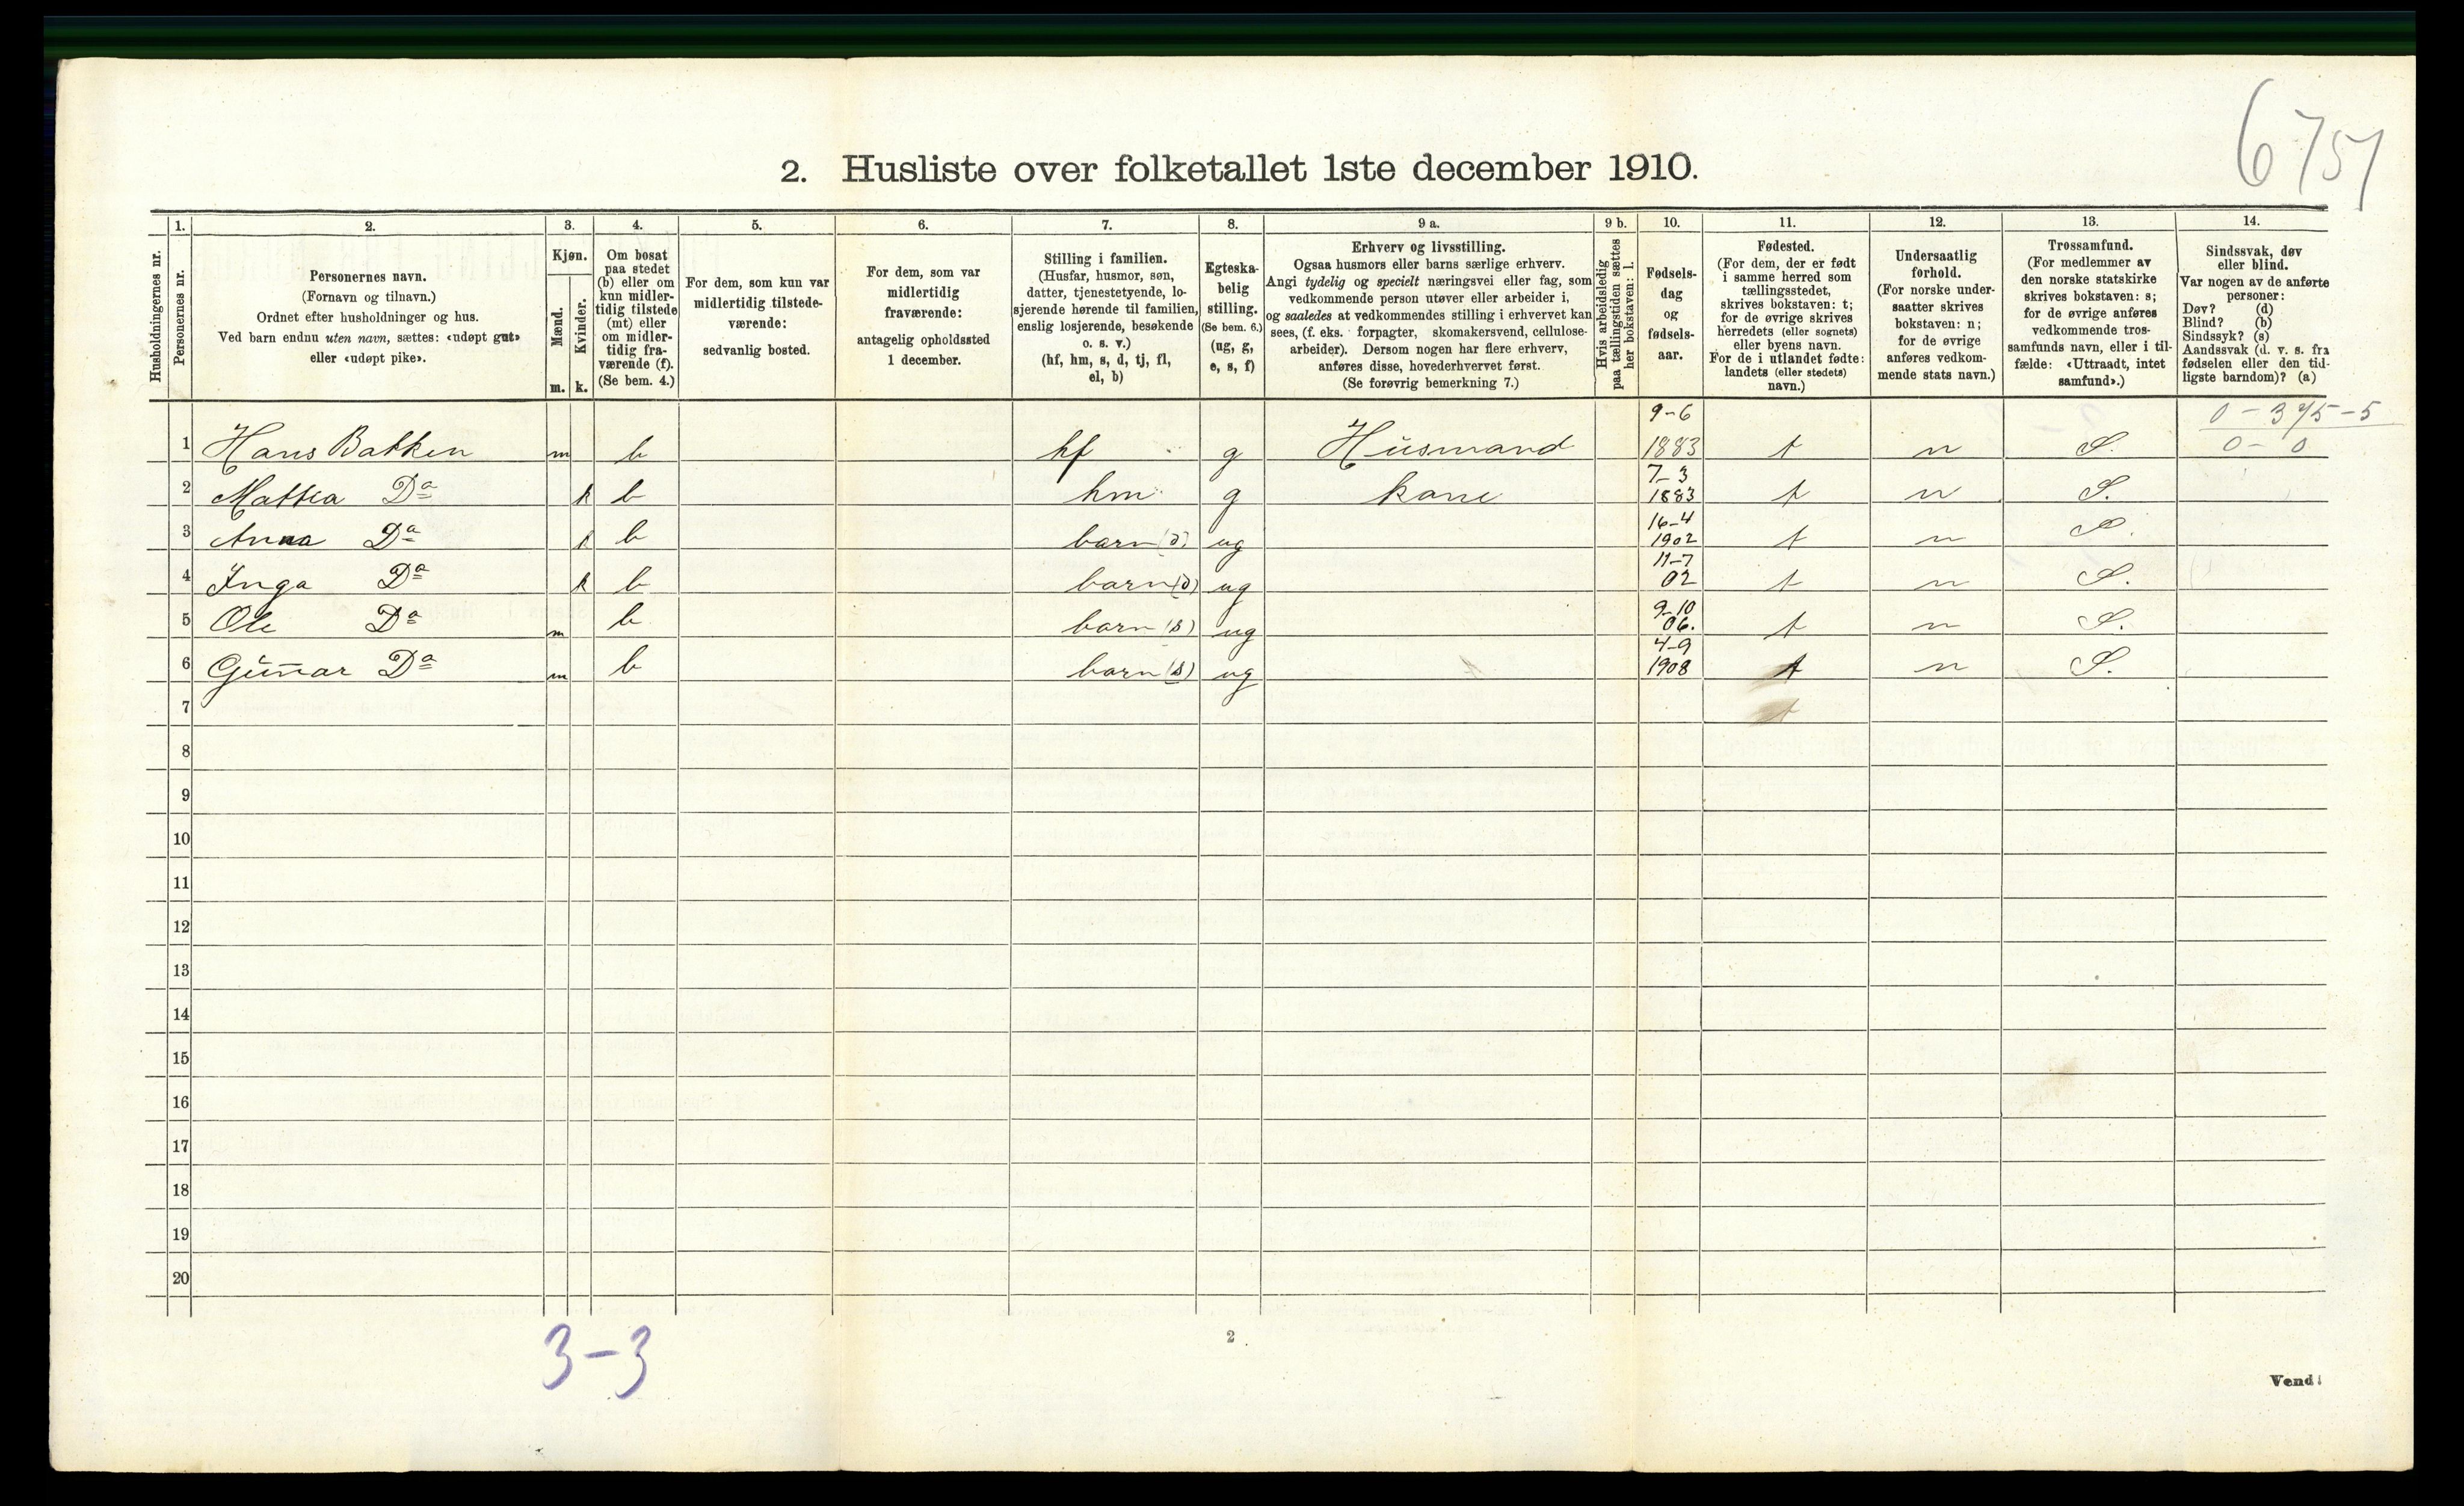 6757
2. Husliste over folketallet 1ste december 1910.
1. 2. 3. 4. 5. 6. 7. 8. 9 a. 9 b. 10. 11. 12. 13. 14.
Husholdningernes nr.
Personernes nr.
Personernes navn.
(Fornavn og tilnavn.)
Ordnet efter husholdninger og hus.
Ved barn endnu uten navn, sættes: «udøpt gut»
eller «udøpt pike».
Kjøn.
Mænd.
Kvinder.
m. k.
Om bosat
paa stedet
(b) eller om
kun midler-
tidig tilstede
(mt) eller
om midler-
tidig fra-
værende (f).
(Se bem. 4.)
For dem, som kun var
midlertidig tilstede-
værende:
sedvanlig bosted.
For dem, som var
midlertidig
fraværende:
antagelig opholdssted
1 december.
Stilling i familien.
(Husfar, husmor, søn,
datter, tjenestetyende, lo-
sjerende hørende til familien,
enslig losjerende, besøkende
o. s. v.)
(hf, hm, s, d, tj, fl,
el, b)
Egteska-
belig
stilling.
(Se bem. 6.)
(ug, g,
e, s, f)
Erhverv og livsstilling.
Ogsaa husmors eller barns særlige erhverv.
Angi tydelig og specielt næringsvei eller fag, som
vedkommende person utøver eller arbeider i,
og saaledes at vedkommendes stilling i erhvervet kan
sees, (f. eks. forpagter, skomakersvend, cellulose-
arbeider). Dersom nogen har flere erhverv,
anføres disse, hovederhvervet først.
(Se forøvrig bemerkning 7.)
Hvis arbeidsledig
paa tællingstiden sættes
her bokstaven: l.
Fødsels-
dag
og
fødsels-
aar.
Fødested.
(For dem, der er født
i samme herred som
tællingsstedet,
skrives bokstaven: t;
for de øvrige skrives
herredets (eller sognets)
eller byens navn.
For de i utlandet fødte:
landets (eller stedets)
navn.)
Undersaatlig
forhold.
(For norske under-
saatter skrives
bokstaven: n;
for de øvrige
anføres vedkom-
mende stats navn.)
Trossamfund.
(For medlemmer av
den norske statskirke
skrives bokstaven: s;
for de øvrige anføres
vedkommende tros-
samfunds navn, eller i til-
fælde: «Uttraadt, intet
samfund».)
Sindssvak, døv
eller blind.
Var nogen av de anførte
personer:
Døv? (d)
Blind? (b)
Sindssyk? (s)
Aandssvak (d. v. s. fra
fødselen eller den tid-
ligste barndom)? (a)
0 - 375 - 5
0 - 0
1 Hans Bakken m b hf g Husmand 9-6 1883 t n S.
2 Mathea Da k b hm g kone 7-3 1883 t n S.
3 Anna Da k b barn (d) ug 16-4 1902 t n S.
4 Inga Da k b barn (d) ug 11-7 02 t n S.
5 Ole Da m b barn (s) ug 9-10 06. t n S.
6 Gunnar Da m b barn (s) ug 4-9 1908 t n S.
7 t
8
9
10
11
12
13
14
15
16
17
18
19
20
3-3
2
Vend!